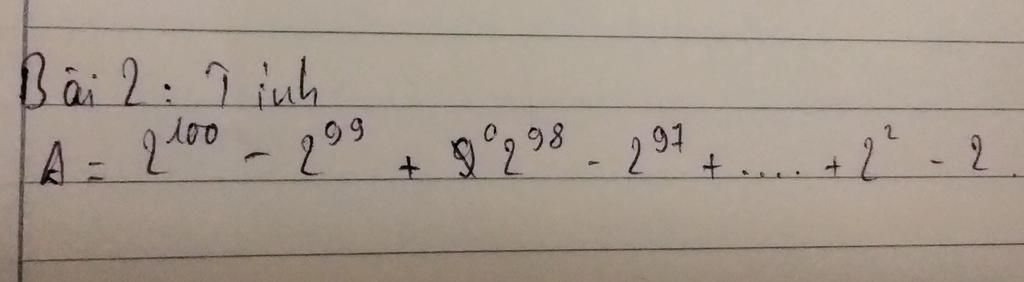 Bài 2: Tính
A = 2¹⁰⁰ - 2⁹⁹ + 2⁹⁸ - 2⁹⁷ + .... + 2² - 2.